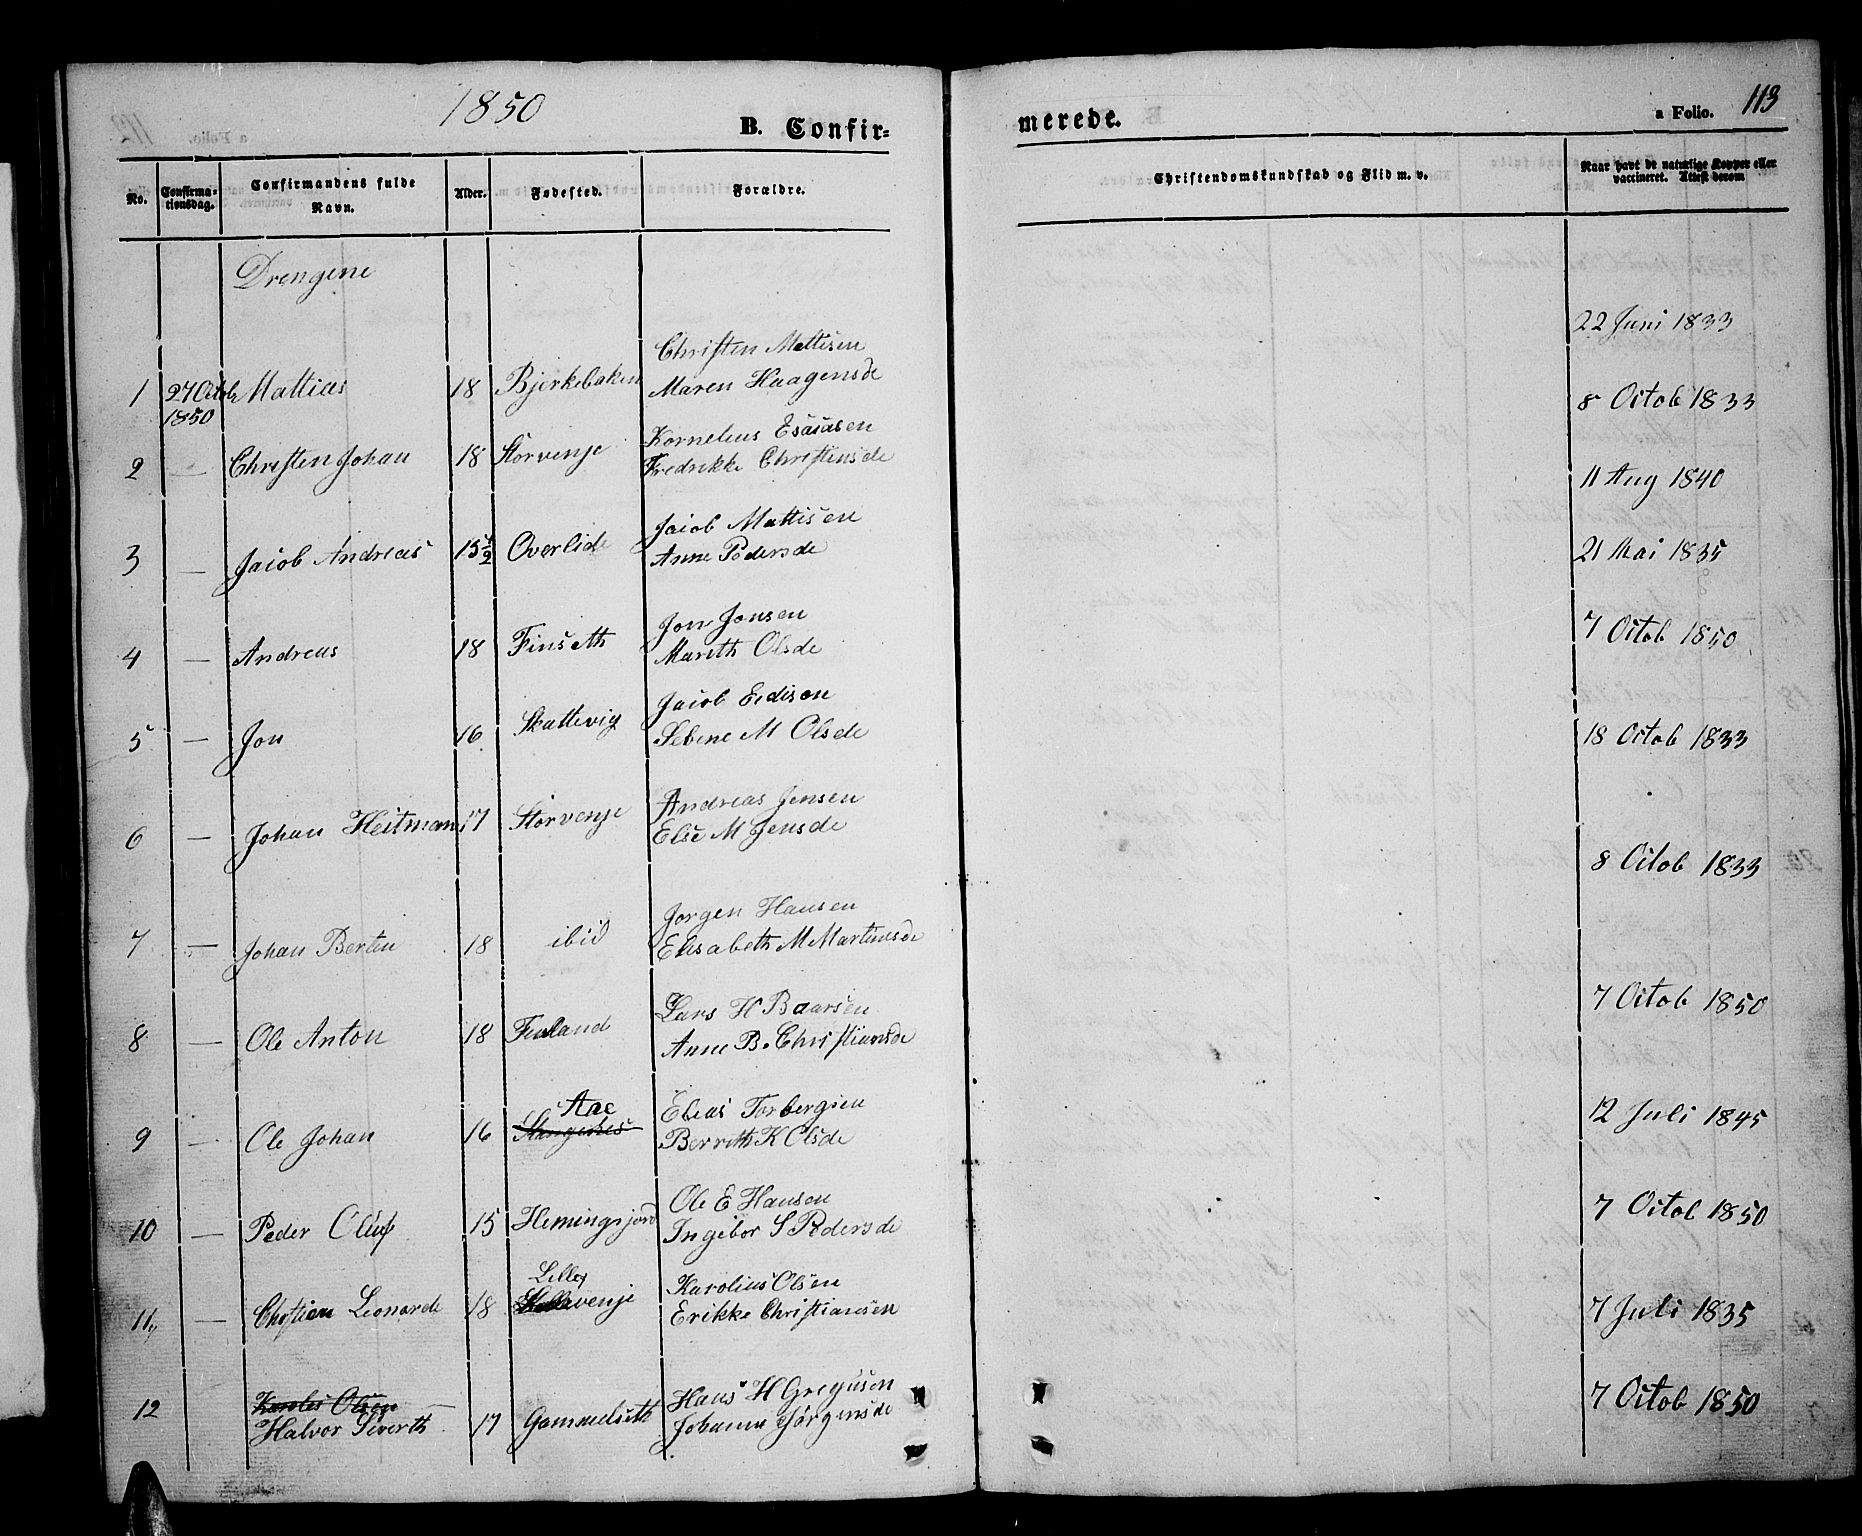 1850
B. Confir=
merede.
a Folio. 113
No.
Confirma-
tionsdag.
Confirmandens fulde
Navn.
Alder.
Fødested.
Forældre.
Christendomskundskab og Flid m. v.
Naar havt de naturlige Kopper eller
vaccineret. Attest derom
Drengene
Christen Mattisen
22 Juni 1833
1 27 Octob Mattias 18 Bjerkebaken Maren Haagensde
1850
Kornelius Esaiasen
8 Octob 1833
2 — Christen Johan 18 Storvenje Fredrikke Christensde
11 Aug 1840
Jacob Mattisen
3 — Jacob Andreas 15 1/2 Overlide Anne Pedersde
21 Mai 1835
Jon Jonsen
4 — Andreas 18 Finseth Marith Olsde
7 Octob 1850
Jacob Edisen
5 — Jon 16 Skattevig Sebine M Olsde
18 Octob 1833
Andreas Jensen
6 — Johan Heitman 17 Storvenje Else M Jensde
8 Octob 1833
Jørgen Hansen
7 — Johan Berten 18 ibid Elisabeth M Martinsde
Lars H Baarsen
7 Octob 1850
8 — Ole Anton 18 Finland Anne B. Christiansde
Aae
Elias Torbergsen
12 Juli 1845
9 — Ole Johan 16 Berrith K Olsde
Ole E Hansen
7 Octob 1850
10 — Peder Oluf 15 Hemingsjord Ingebor S Pedersde
Lille
Karolius Olsen
11 — Christian Leonard 18 venje Erikke Christiansen
7 Juli 1835
Karolis Olsen
Hans H Gregusen
7 Octob 1850
12 Halvor Siverth 17 Gammelseth Johanna Jørgensde